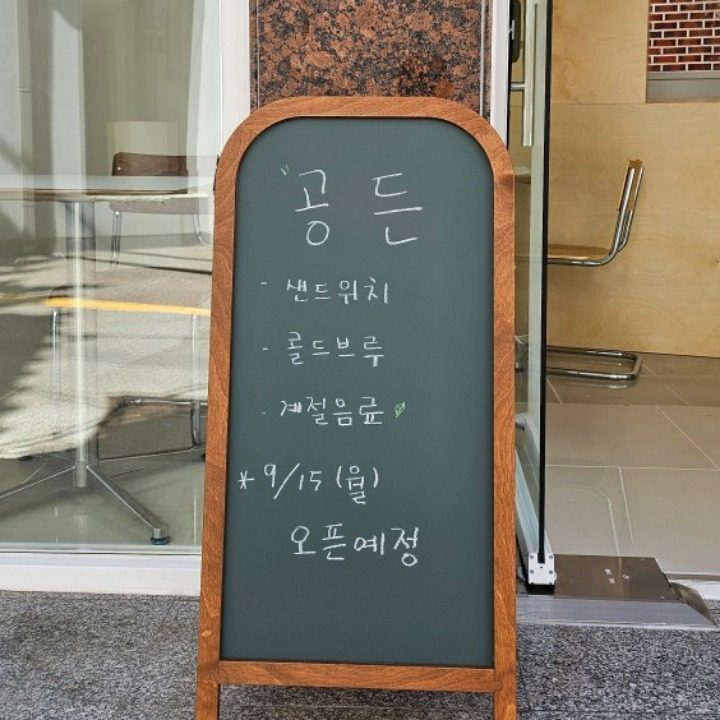 공든
- 샌드위치
- 콜드브루
- 계절음료
* 9/15 (월)
오픈예정